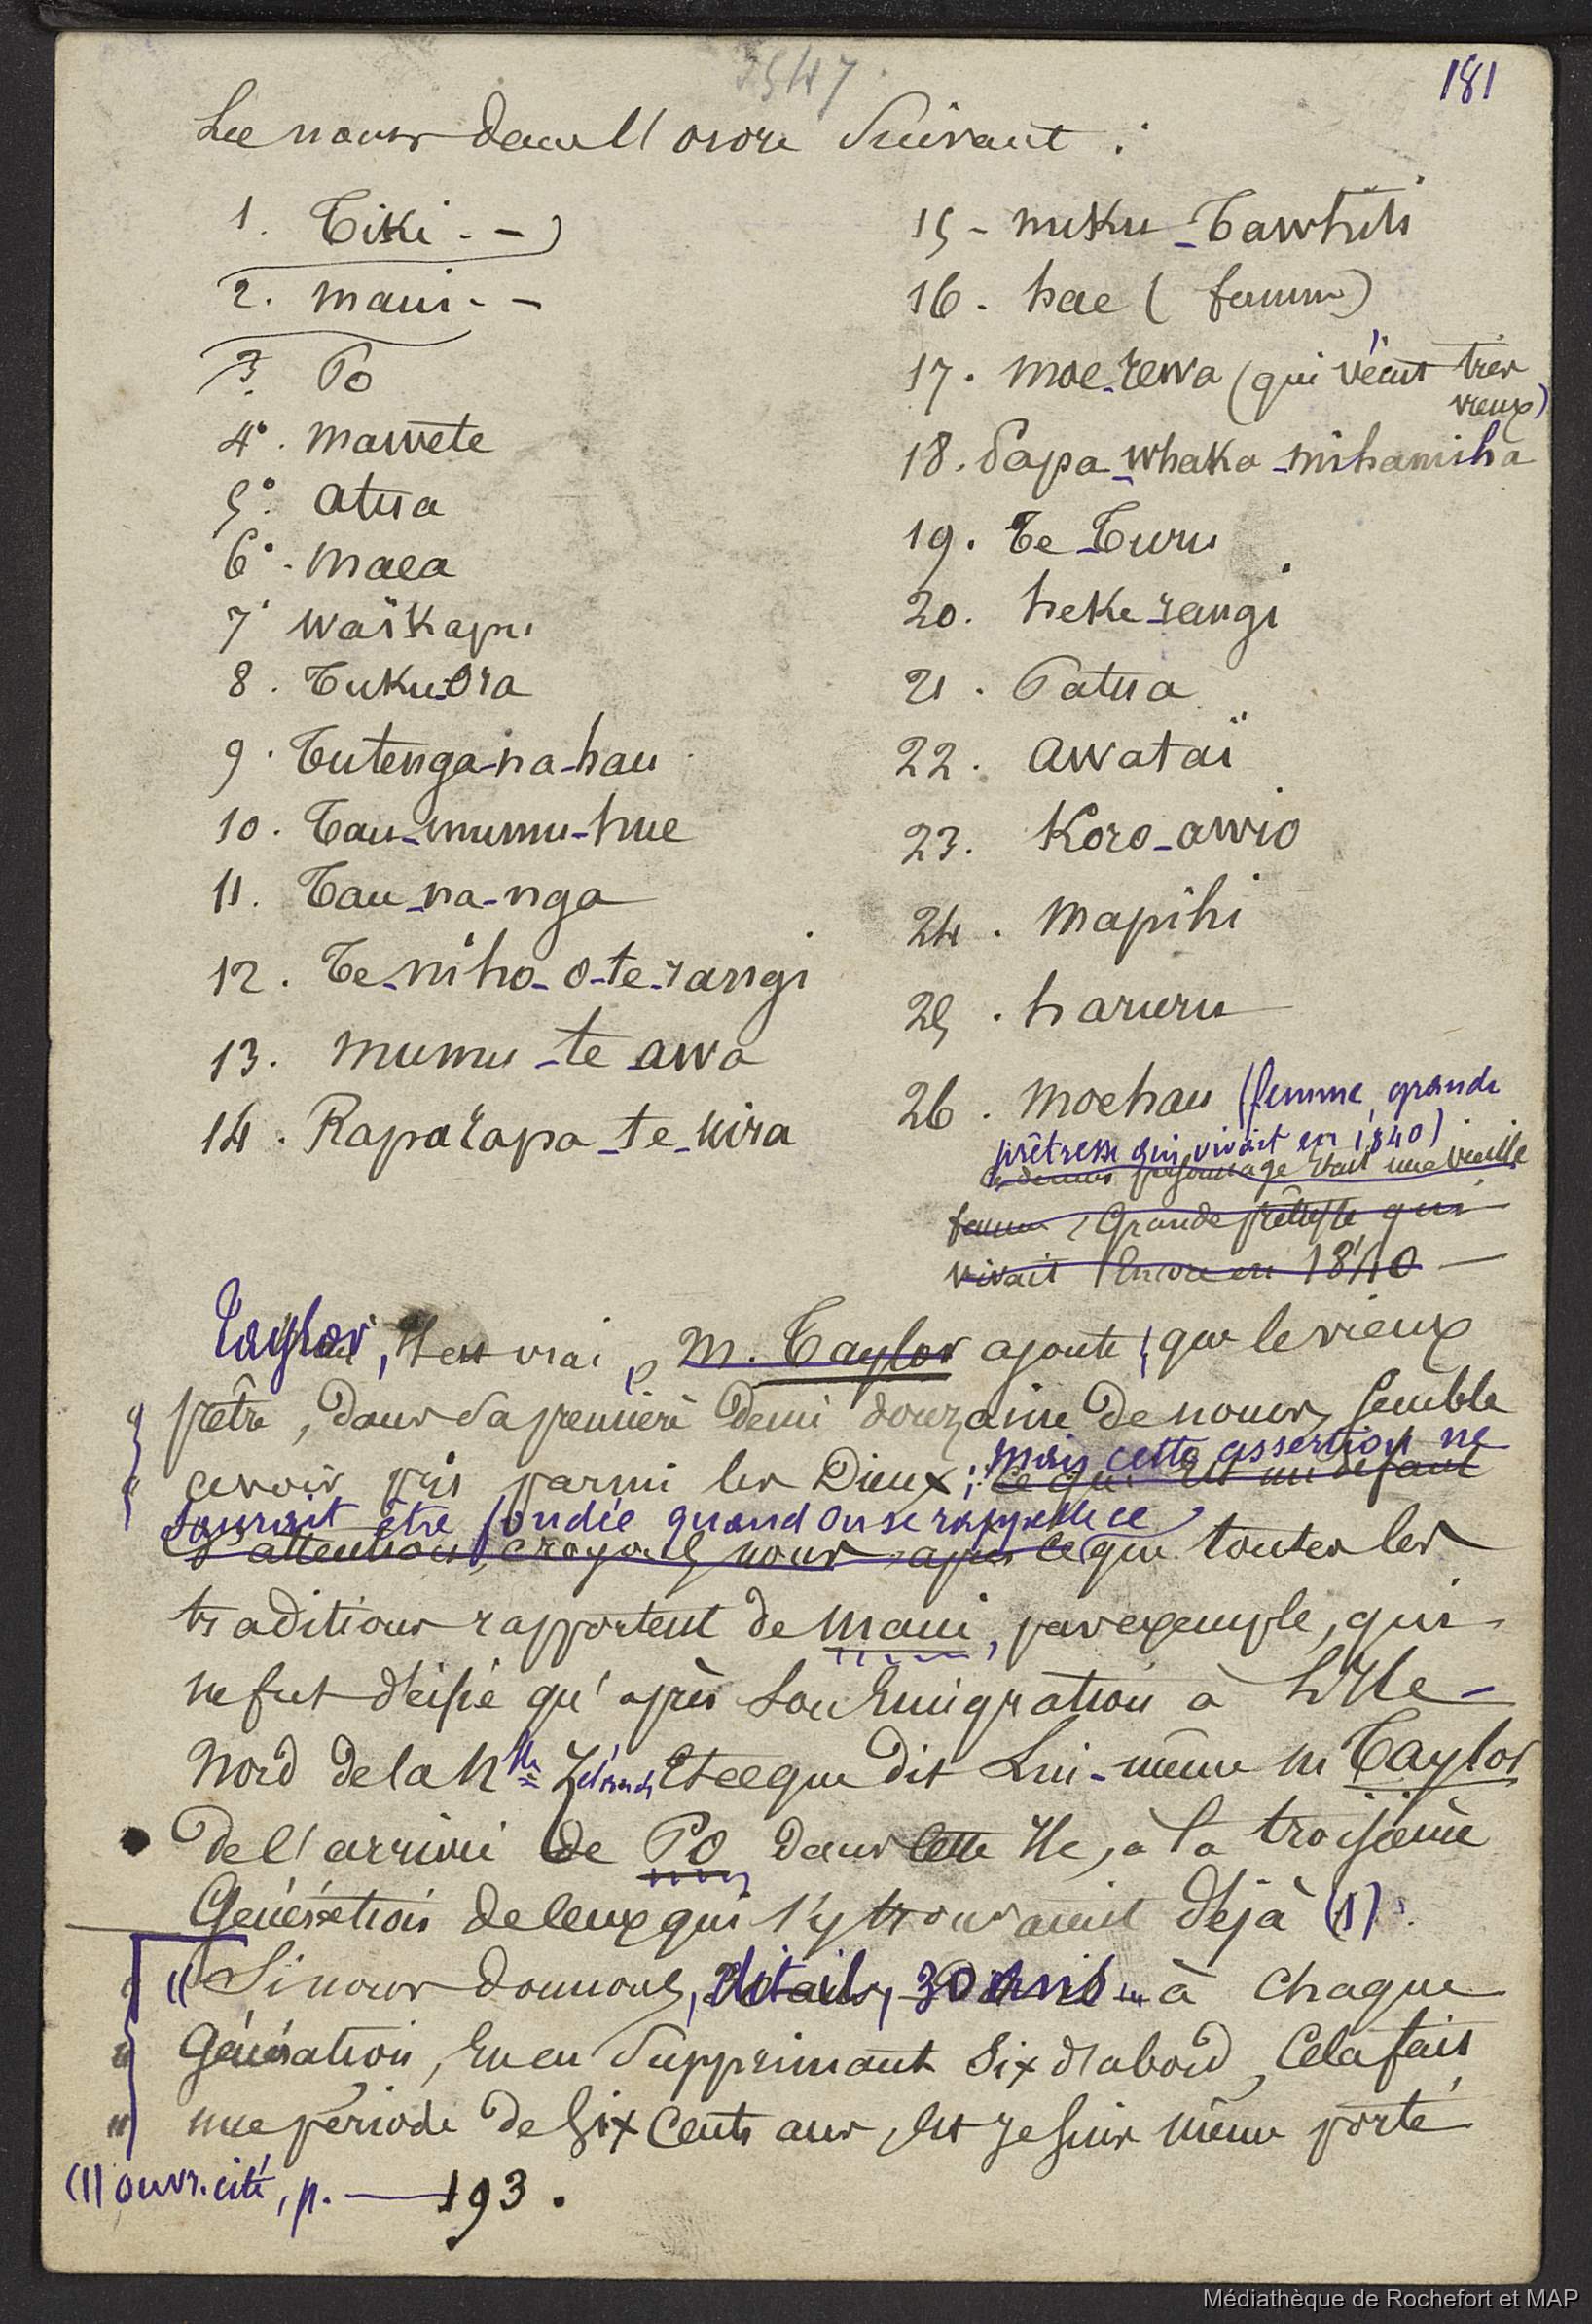 2547
181
Les noms dans l'ordre suivant :
1. Tiki - -
2. Maui - -
3. Po
4°. Mawete
5°. Atua
6°. Maea
7° Waïkapu
8. Tuku-ora
9. Tutenga-na-hau
10. Tau-mumu-hue
11. Tau-na-nga
12. Te-niho-o-te-rangi
13. Mumu-te-awa
14. Raparapa-te-uira
15 - Miku-Tawhiti
16. hae (femme)
17. Moe-rewa (qui vécut très
vieux)
18. Papa-whaka-mihamiha
19. Te-Turu
20. heke-rangi
21. Patua
22. Awataï
23. Koro-awio
24. Mapihi
25. haruru
26. Moehau (femme, grande
prêtresse qui vivait en 1840)
Ce dernier personnage était une vieille
femme, Grande prêtresse qui
vivait encore en 1840 —
Taylor, Il est vrai, M. Taylor ajoute, que le vieux
" prêtre, dans sa première demi douzaine de noms, semble
" avoir pris parmi les Dieux ; mais cette assertion ne
ce qui est un défaut
saurait être fondée quand on se rappelle ce
d'attention, croyons nous, après ce que toutes les
traditions rapportent de Maui, par exemple, qui
ne fut déifié qu'après son Emigration à L'Ile-
Nord de la Nlle Zélande, Et ce que dit Lui-même M Taylor
de l'arrivée de Po dans cette Ile, à la troisième
Génération de ceux qui s'y trouvaient déjà (1).
" Si nous donnons, dit-il, 30 ans à chaque
" Génération, En en supprimant six d'abord, Cela fait
" une période de Six Cents ans, Et je suis même porté
(1) ouvr. cité, p. — 193.
Médiathèque de Rochefort et MAP